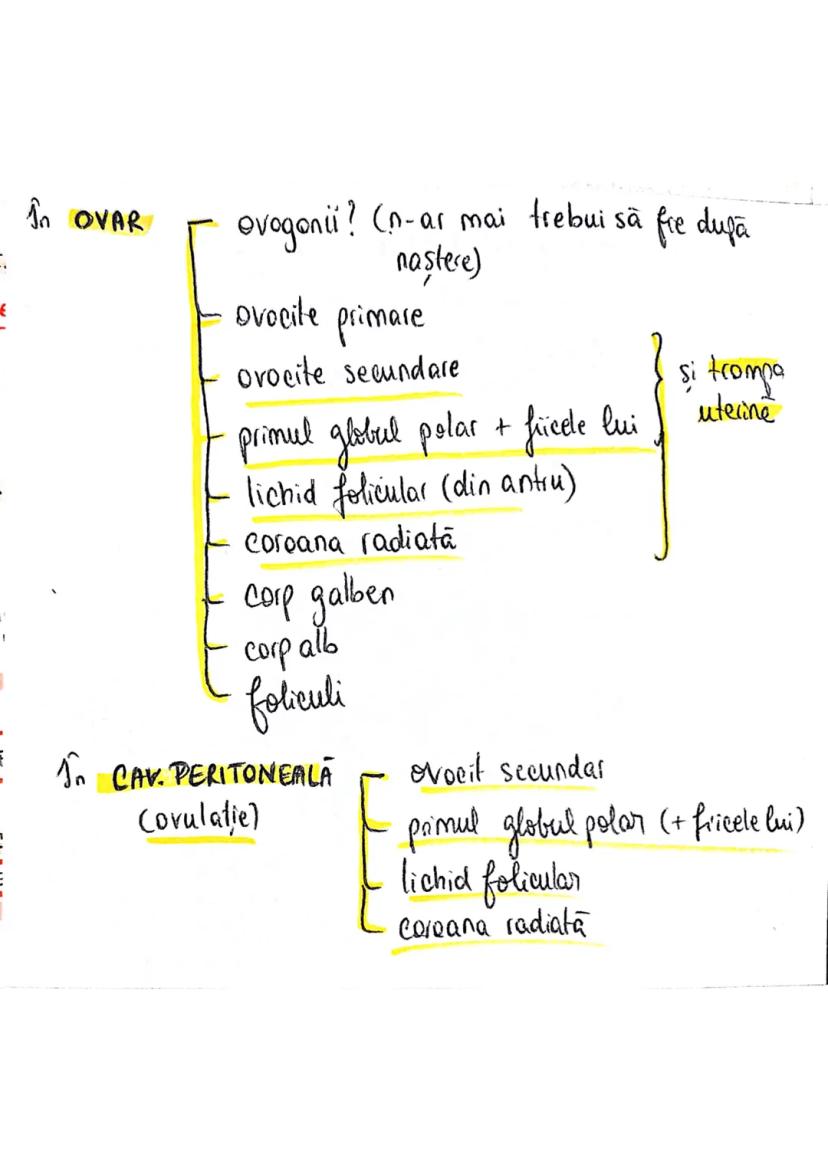 În OVAR
ovogonii? (n-ar mai trebui să fie după
naștere)
ovocite primare
ovocite secundare
primul globul polar + fiicele lui
lichid folicular (din antru)
coroana radiată
și trompa
uterină
corp galben
corp alb
foliculi
În CAV. PERITONEALĂ
(ovulație)
ovocit secundar
primul globul polar (+ fiicele lui)
lichid folicular
coroana radiată